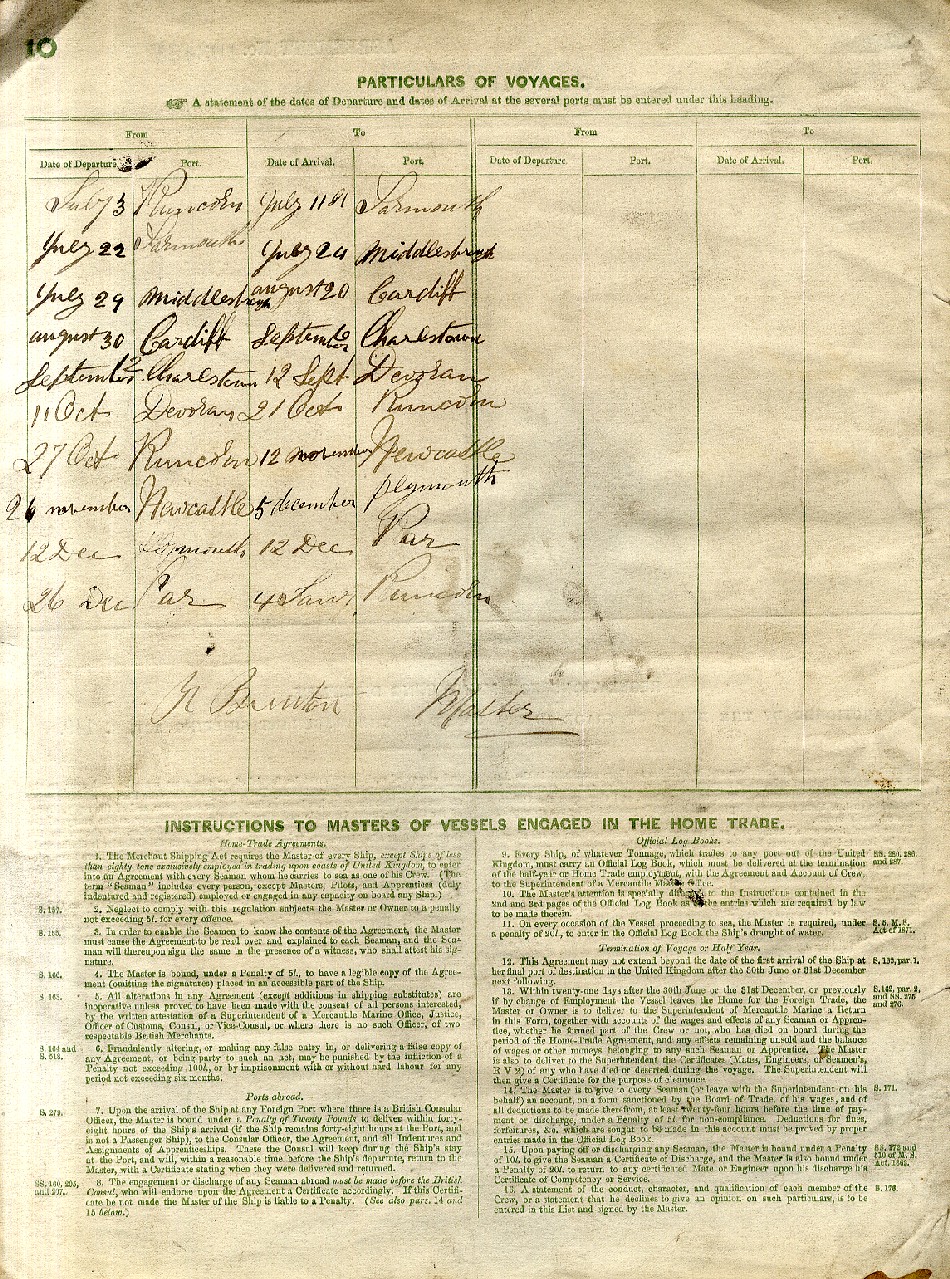 10
PARTICULARS OF VOYAGES.
A statement of the dates of Departure and dates of Arrival at the several ports must be entered under this heading.
From To From To
Date of Departure. Port. Date of Arrival. Port. Date of Departure. Port. Date of Arrival. Port.
July 3 Runcorn July 11 Yarmouth
July 22 Yarmouth July 24 Middlesbrough
July 29 Middlesbrough august 20 Cardiff
august 30 Cardiff September Charlestown
September Charlestown 12 Sept Devoran
11 Oct Devoran 21 Oct Runcorn
27 Oct Runcorn 12 november Newcastle
november Newcastle 5 december plymouth
12 Dec plymouth 12 Dec Par
26 Dec Par 4 Runcorn
Master
INSTRUCTIONS TO MASTERS OF VESSELS ENGAGED IN THE HOME TRADE.
Home-Trade Agreements.
1. The Merchant Shipping Act requires the Master of every Ship, except Ships of less
than eighty tons exclusively employed in trading upon coasts of United Kingdom, to enter
into an Agreement with every Seaman whom he carries to sea as one of his Crew. (The
term "Seaman" includes every person, except Masters, Pilots, and Apprentices (duly
indentured and registered) employed or engaged in any capacity on board any Ship.)
2. Neglect to comply with this regulation subjects the Master or Owner to a penalty
not exceeding 5l. for every offence.
S. 155. 3. In order to enable the Seamen to know the contents of the Agreement, the Master
must cause the Agreement to be read over and explained to each Seaman, and the Sea-
man will thereupon sign the same in the presence of a witness, who shall attest his sig-
nature.
4. The Master is bound, under a Penalty of 5l., to have a legible copy of the Agree-
ment (omitting the signatures) placed in an accessible part of the Ship.
S. 163. 5. All alterations in any Agreement (except additions in shipping substitutes) are
inoperative unless proved to have been made with the consent of all persons interested,
by the written attestation of a Superintendent of a Mercantile Marine Office, Justice,
Officer of Customs, Consul, or Vice-Consul, or where there is no such Officer, of two
respectable British Merchants.
6. Fraudulently altering, or making any false entry in, or delivering a false copy of
any Agreement, or being party to such an act, may be punished by the infliction of a
Penalty not exceeding 100l., or by imprisonment with or without hard labour for any
period not exceeding six months.
Ports abroad.
S. 279. 7. Upon the arrival of the Ship at any Foreign Port where there is a British Consular
Officer, the Master is bound under a Penalty of Twenty Pounds to deliver within forty-
eight hours of the Ship's arrival (if the Ship remains forty-eight hours at the Port, and
is not a Passenger Ship), to the Consular Officer, the Agreement, and all Indentures and
Assignments of Apprenticeships. These the Consul will keep during the Ship's stay
at the Port, and will, within a reasonable time before the Ship's departure, return to the
Master, with a Certificate stating when they were delivered and returned.
8. The engagement or discharge of any Seaman abroad must be made before the British
Consul, who will endorse upon the Agreement a Certificate accordingly. If this Certifi-
cate be not made the Master of the Ship is liable to a Penalty. (See also pars. 14 and
15 below.)
Official Log Books.
9. Every Ship, of whatever Tonnage, which trades to any port out of the United
Kingdom, must carry an Official Log Book, which must be delivered at the termination
of the half-year or Home Trade employment, with the Agreement and Account of Crew,
to the Superintendent of a Mercantile Marine Office.
10. The Master's attention is specially directed to the Instructions contained in the
2nd and 3rd pages of the Official Log Book as to the entries which are required by law
to be made therein.
11. On every occasion of the Vessel proceeding to sea, the Master is required, under
a penalty of 20l., to enter in the Official Log Book the Ship's draught of water.
Termination of Voyage or Half Year.
12. This Agreement may not extend beyond the date of the first arrival of the Ship at
her final port of destination in the United Kingdom after the 30th June or 31st December
next following.
13. Within twenty-one days after the 30th June or the 31st December, or previously
if by change of Employment the Vessel leaves the Home for the Foreign Trade, the
Master or Owner is to deliver to the Superintendent of Mercantile Marine a Return
in this Form, together with accounts of the wages and effects of any Seaman or Appren-
tice, whether he formed part of the Crew or not, who has died on board during the
period of the Home-Trade Agreement, and any effects remaining unsold and the balance
of wages or other moneys belonging to any such Seaman or Apprentice. The Master
is also to deliver to the Superintendent the Certificates (Mates, Engineers, or Seaman's,
R V 2) of any who have died or deserted during the voyage. The Superintendent will
then give a Certificate for the purpose of clearance.
14. The Master is to give to every Seaman (or leave with the Superintendent on his
behalf) an account, on a form sanctioned by the Board of Trade, of his wages, and of
all deductions to be made therefrom, at least twenty-four hours before the time of pay-
ment or discharge, under a Penalty of 5l. for non-compliance. Deductions for fines,
forfeitures, &c. which are sought to be made in this account must be proved by proper
entries made in the Official Log Book.
S. 171.
15. Upon paying off or discharging any Seaman, the Master is bound under a Penalty
of 10l. to give the Seaman a Certificate of Discharge, and the Master is also bound under
a Penalty of 20l. to return to any certificated Mate or Engineer upon his discharge his
Certificate of Competency or Service.
16. A statement of the conduct, character, and qualification of each member of the
Crew, or a statement that he declines to give an opinion on such particulars, is to be
entered in this List and signed by the Master.
S. 176.